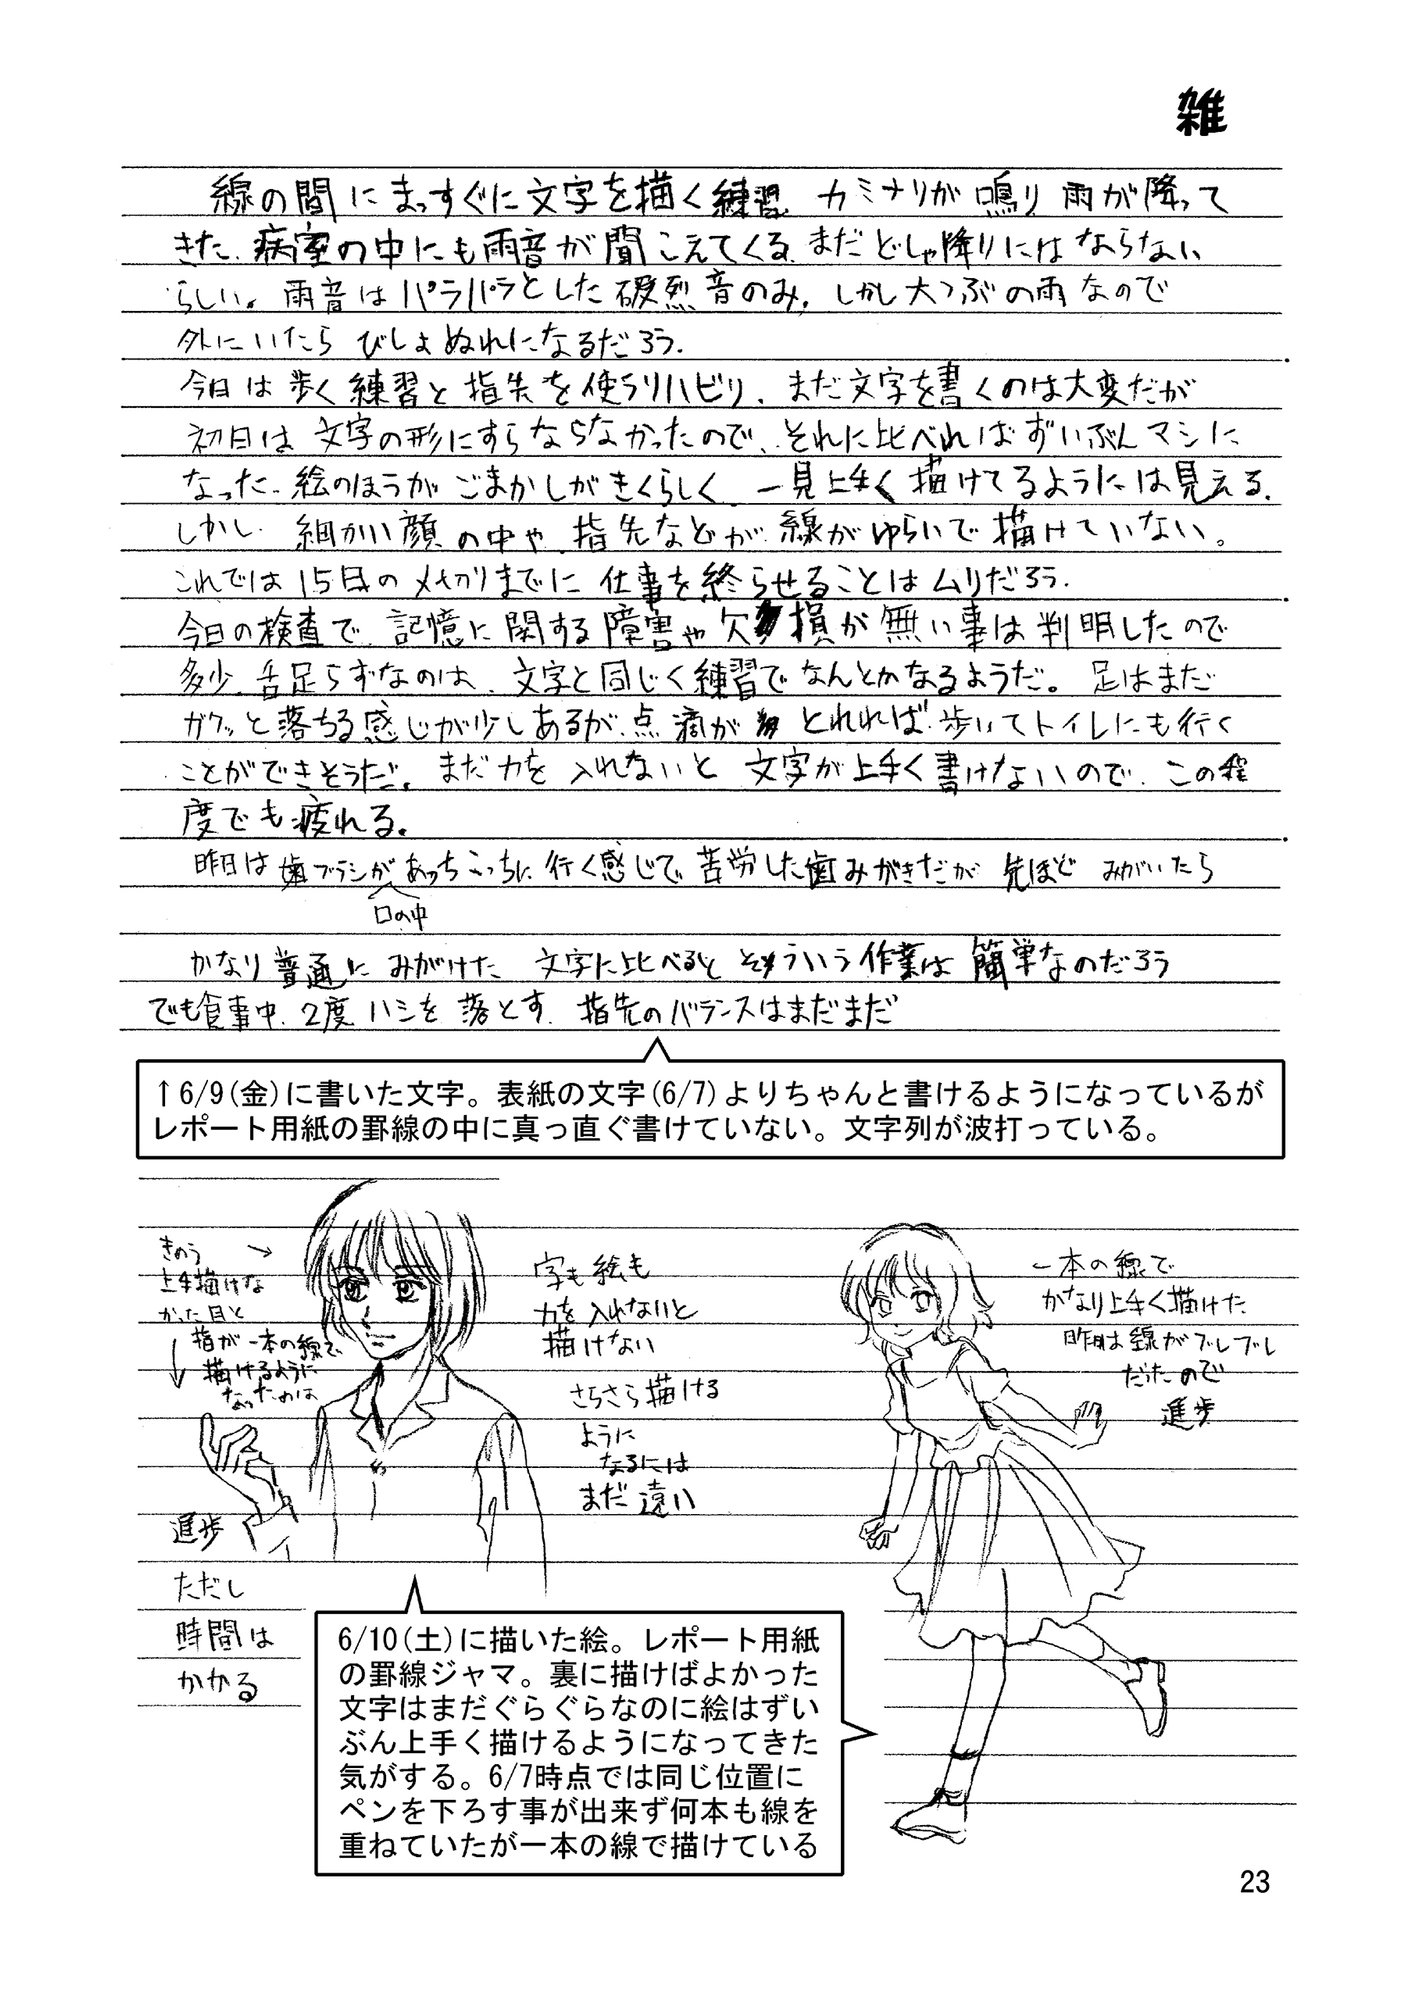 雑
線の間にまっすぐに文字を描く練習 カミナリが鳴り 雨が降って
きた、病室の中にも雨音が聞こえてくる、まだどしゃ降りにはならない
らしい。雨音はパラパラとした破烈音のみ、しかし大つぶの雨なので
外にいたら びしょぬれになるだろう、
今日は歩く練習と指先を使うリハビリ、まだ文字を書くのは大変だが
初日は文字の形にすらならなかったので、それに比べればずいぶんマシに
なった、絵のほうがごまかしがきくらしく、一見上手く描けてるようには見える、
しかし、細かい顔の中や、指先などが、線がゆらいで描けていない。
これでは15日の〆切りまでに仕事を終らせることはムリだろう、
今日の検査で、記憶に関する障害や欠損が無い事は判明したので
多少、舌足らずなのは、文字と同じく練習でなんとかなるようだ。足はまだ
ガクッと落ちる感じが少しあるが、点滴がとれれば、歩いてトイレにも行く
ことができそうだ。まだ力を入れないと文字が上手く書けないので、この程
度でも疲れる。
昨日は歯ブラシがあっちこっちに行く感じで苦労した歯みがきだが 先ほど みがいたら
口の中
かなり普通にみがけた 文字に比べると そういう作業は簡単なのだろう
でも食事中、2度ハシを落とす、指先のバランスはまだまだ
↑6/9(金)に書いた文字。表紙の文字(6/7)よりちゃんと書けるようになっているが
レポート用紙の罫線の中に真っ直ぐ書けていない。文字列が波打っている。
きのう →
上手描けな
かった目と
↓ 指が一本の線で
描けるように
なったのは
進歩
ただし
時間は
かかる
字も絵も
力を入れないと
描けない
さらさら描ける
ように
なるには
まだ遠い
一本の線で
かなり上手く描けた
昨日は線がブレブレ
だったので
進歩
6/10(土)に描いた絵。レポート用紙
の罫線ジャマ。裏に描けばよかった
文字はまだぐらぐらなのに絵はずい
ぶん上手く描けるようになってきた
気がする。6/7時点では同じ位置に
ペンを下ろす事が出来ず何本も線を
重ねていたが一本の線で描けている
23